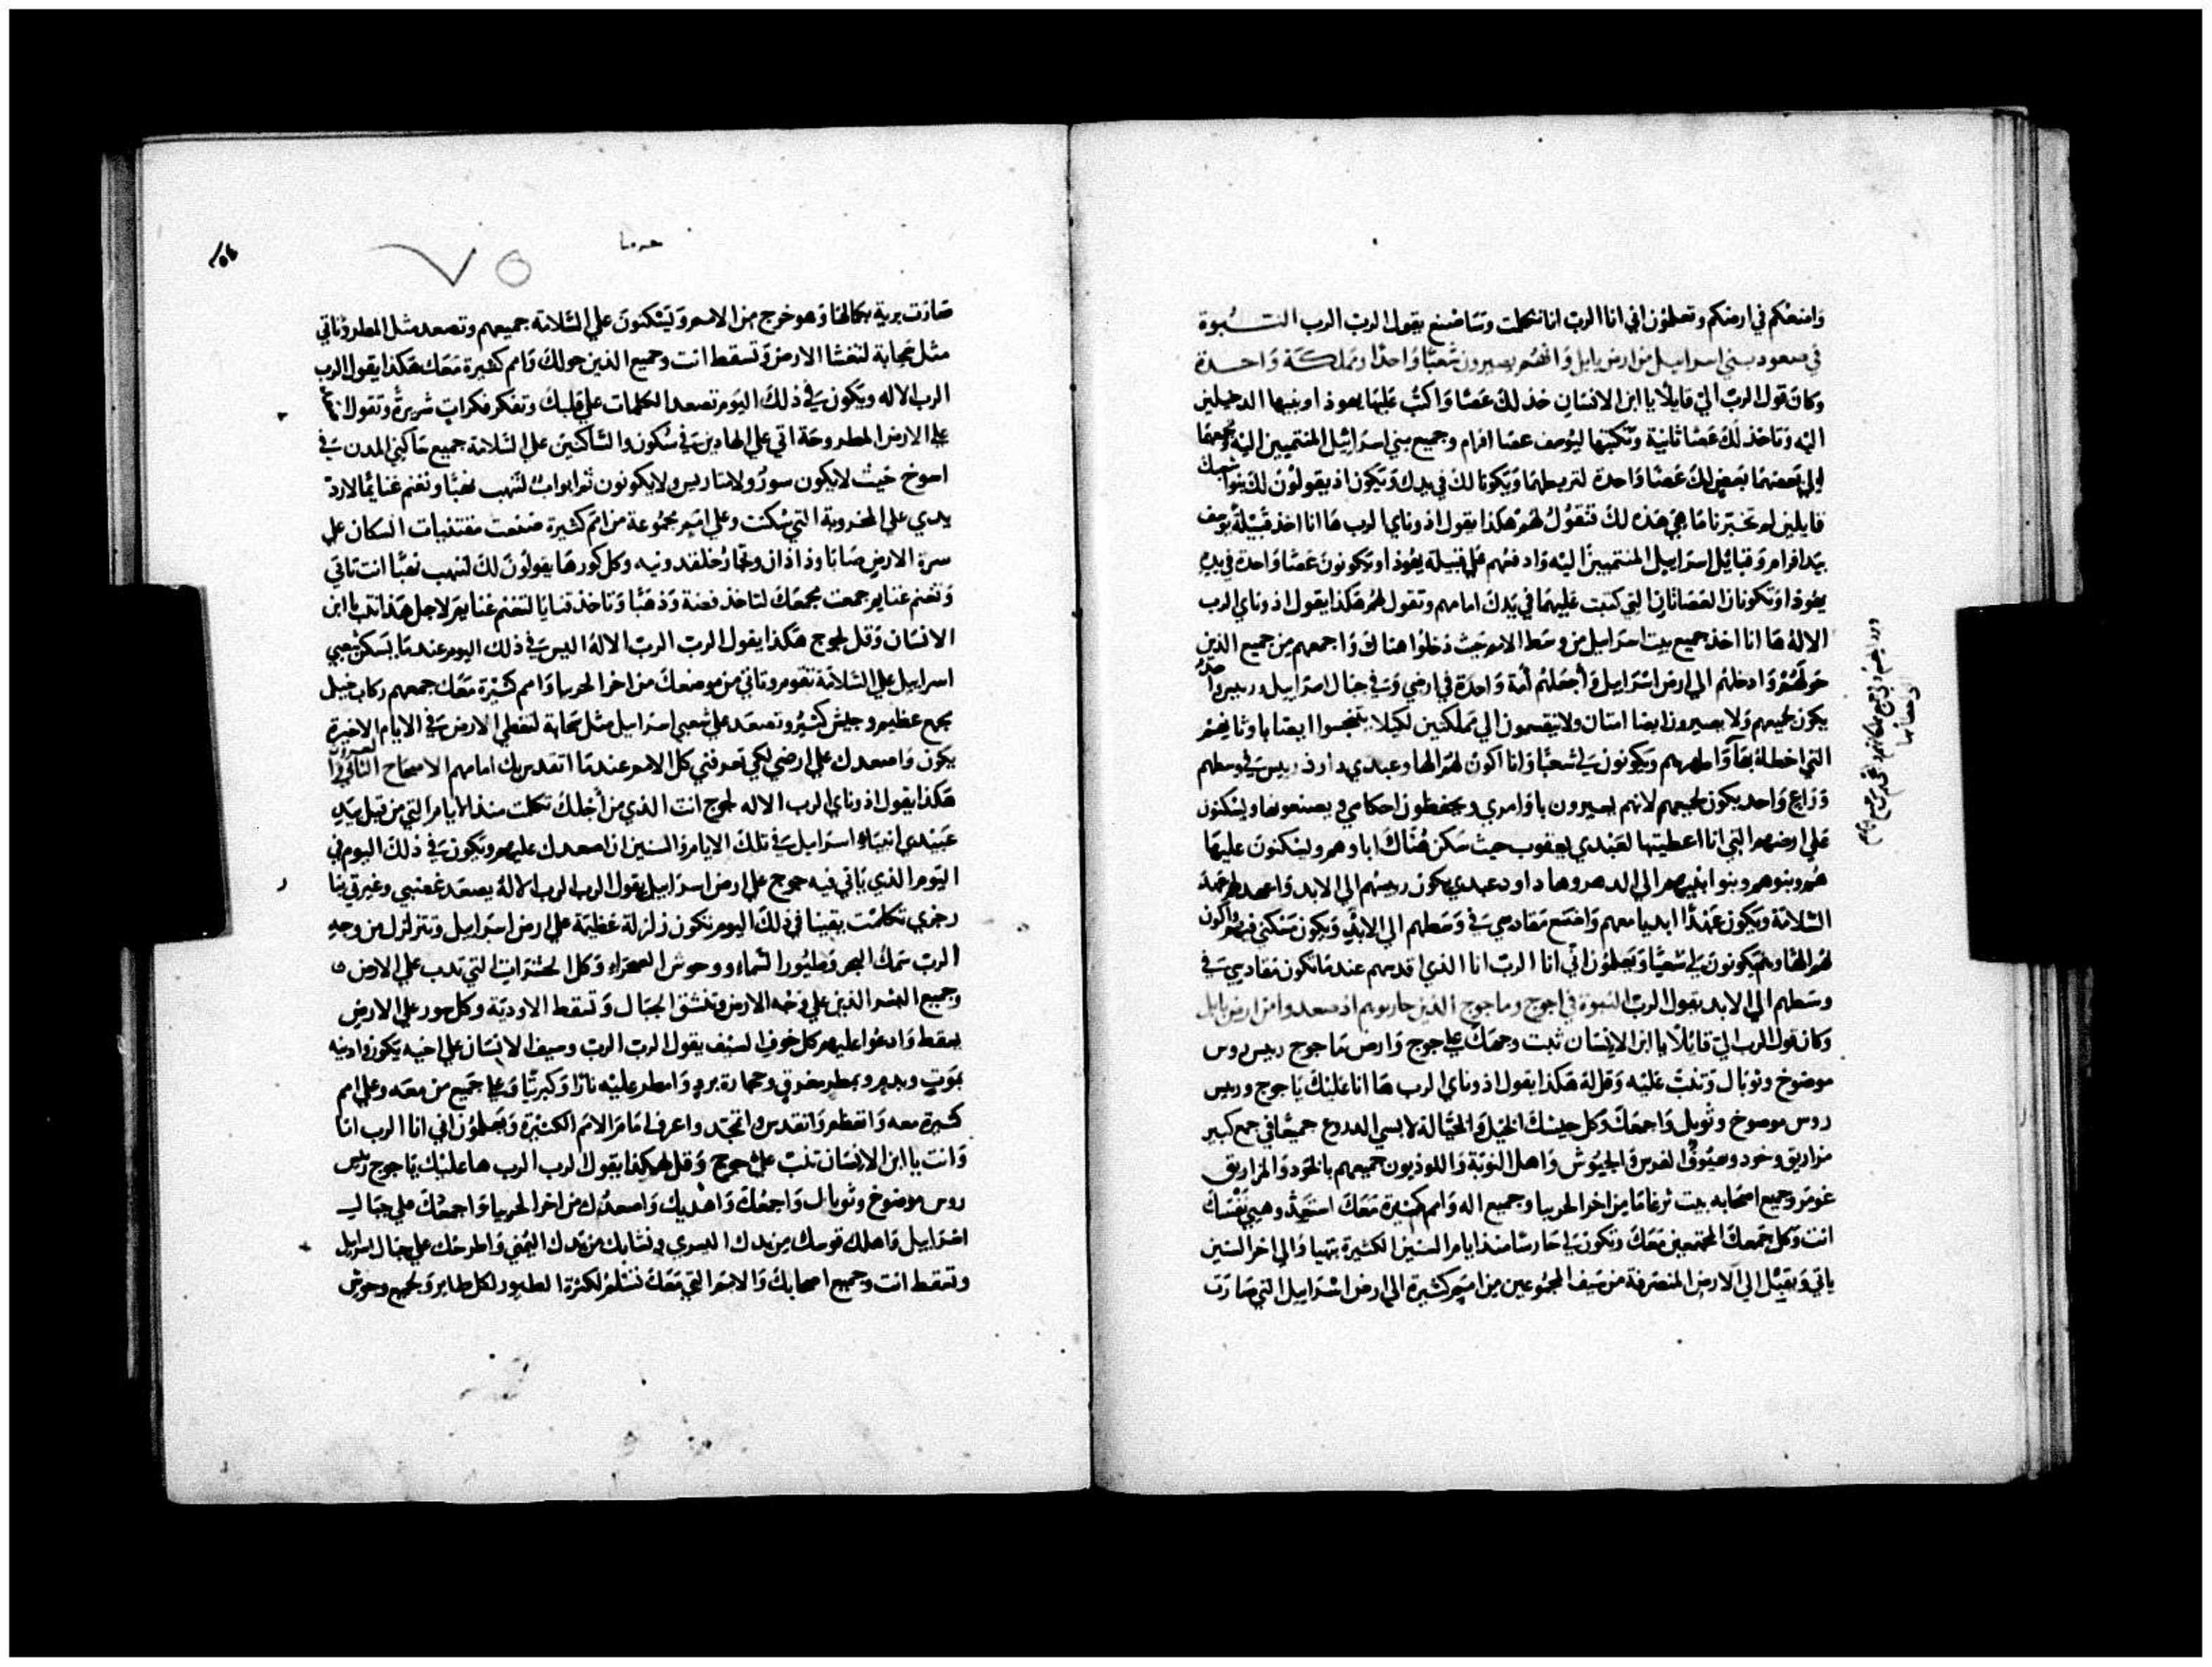 واضعكم في ارضكم وتعلمون اني انا الرب انا تكلمت وساصنع يقول الرب الرب النبوة
في صعود بني اسراييل من ارض بابل وانهم يصيرون شعبا واحدا ومملكة واحدة
وكان قول الرب الي قايلا يا ابن الانسان خذ لك عصا واكتب عليها يهوذا وبنيها الدخيلين
اليه وتاخذ لك عصا ثانية وتكتبها ليوسف عصا افرام وجميع بني اسراييل المنتميين اليه وتجمعهما
الي بعضهما بعض لك عصا واحدة لتربطهما ويكونا لك في يدك ويكون اذ يقولون لك بنوا شعبك
قايلين لم تخبرنا ما هي هذه لك فتقول لهم هكذا يقول ادوناي الرب ها انا اخذ قبيلة يوسف
بيد افرام وقبايل اسراييل المنتميين اليه وادفعهم علي قبيلة يهوذا ويكونون عصا واحدة في يد
يهوذا وتكونان العصاتان التي كتبت عليهما في يدك امامهم وتقول لهم هكذا يقول ادوناي الرب
الاله ها انا اخذ جميع بيت اسراييل من وسط الامم حيث دخلوا هناك واجمعهم من جميع الذين
حولهم وادخلهم الي ارض اسراييل واجعلهم أمة واحدة في ارضي وفي جبال اسراييل ورييس واحد
يكون لجميعهم ولا يصيرون ايضا امتان ولا ينقسمون الي مملكتين لكيلا يتنجسوا ايضا باوثانهم
التي اخطاوا بها واطهرهم ويكونون لي شعبا وانا اكون لهم الها وعبدي داود رييس في وسطهم
وراع واحد يكون لجميعهم لانهم يسيرون باوامري ويحفظون احكامي ويصنعونها ويسكنون
علي ارضهم التي انا اعطيتها لعبدي يعقوب حيث سكن هناك اباوهم ويسكنون عليها
هم وبنوهم وبنوا بنيهم الي الدهر وها داود عبدي يكون رييسهم الي الابد واعهد لهم عهد
السلامة ويكون عهدا ابديا معهم واضع مقادسي في وسطهم الي الابد ويكون مسكني فيهم واكون
لهم الها وهم يكونون لي شعبا ويعلمون اني انا الرب انا الذي اقدسهم عندما تكون مقادسي في
وسطهم الي الابد يقول الرب النبوة في اجوج وماجوج الذين حاربوهم اذ صعدوا من ارض بابل
وكان قول الرب الي قائلا يا ابن الانسان ثبت وجهك علي جوج وارض ماجوج رييس روس
موصوخ وثوبال وتنب عليه وقل له هكذا يقول ادوناي الرب ها انا عليك يا جوج ورييس
روس موصوخ وثوبل واجمعك وكل جيشك الخيل والخيالة لابسي الدروع جميعا في جمع كبير
مزاريق وخود وصنوف الفرس والحبوش واهل النوبة واللوديون جميعهم بالخود والمزاريق
غومر وجميع اصحابه بيت ثرغاما من اخر الجربيا وجميع اله وامم كثيرة معك استعد وهيي نفسك
انت وكل جمعك المجتمعين معك وتكون لي حارسا منذ ايام السنين الكثيرة يتهيا والي اخر السنين
ياتي ويقبل الي الارض المنصرفة من سيف المجموعين من امم كثيرة الي ارض اسراييل التي صارت
صارت برية بكمالها وهو خرج من الامم ويسكنون علي السلامة جميعهم وتصعد مثل المطر وتاتي
مثل سحابة لتغشا الارض وتسقط انت وجميع الذين حولك وامم كثيرة معك هكذا يقول الرب
الرب الاله ويكون في ذلك اليوم تصعد الكلمات علي قلبك وتفكر فكرات شريرة وتقول
علي الارض المطروحة اتي علي الهادين في سكون والساكنين علي السلامة جميع ساكني المدن في
حيث لا يكون سور ولا متاريس ولا يكونون ثم ابواب لتنهب نهبا وتغنم غنايما لارد
يدي علي المخروبة التي سكنت وعلي امم مجموعة من امم كثيرة صنعت مقتنيات السكان علي
سرة الارض سابا وذاذان وتجار خلقدونيه وكل كورها يقولون لك لتنهب نهبا انت تاتي
وتغنم غنايم جمعت مجمعك لتاخذ فضة وذهبا وتاخذ قنايا لتغنم غنايم لاجل هذا تنب يا ابن
الانسان وقل لجوج هكذا يقول الرب الرب الاله اليس في ذلك اليوم عندما يسكن شعبي
اسراييل علي السلامة تقوم وتاتي من موضعك من اخر الجربيا وامم كثيرة معك جمعهم ركاب خيل
بجمع عظيم وجيش كثير وتصعد علي شعبي اسراييل مثل سحابة لتغطي الارض في الايام الاخيرة
يكون واصعدك علي ارضي لكي تعرفني كل الامم عندما اتقدس بك امامهم الاصحاح الثاني والعشرون
هكذا يقول ادوناي الرب الاله لجوج انت الذي من أجلك تكلمت منذ الايام التي من قبل بيد
عبيدي انبياء اسراييل في تلك الايام والسنين ان اصعدك عليهم ويكون في ذلك اليوم في
اليوم الذي ياتي فيه جوج علي ارض اسراييل يقول الرب الرب الاله يصعد غضبي وغيرتي بنا
رجزي تكلمت يقينا في ذلك اليوم تكون زلزلة عظيمة علي ارض اسراييل وتتزلزل من وجه
الرب سمك البحر وطيور السماء ووحوش الصحراء وكل الحشرات التي تدب علي الارض
وجميع البشر الذين علي وجه الارض وتنشق الجبال وتسقط الاودية وكل سور علي الارض
يسقط وادعوا عليهم كل خوف السيف يقول الرب الرب وسيف الانسان علي اخيه يكون وادينه
بموت وبدم وبمطر مغرق وحجارة برد وامطر عليه نارا وكبريتا وعلي جميع من معه وعلي امم
كثيرة معه واتعظم واتقدس واتمجد واعرف امام الامم الكثيرة ويعلمون اني انا الرب انا
وانت يا ابن الانسان تنب علي جوج وقل هكذا يقول الرب الرب ها عليك يا جوج رييس
روس موصوخ وثوبال واجمعك واهديك واصعدك من اخر الجربيا واجمعك علي جبال
اسراييل واهلك قوسك من يدك اليسري ونشابك من يدك اليمني واطرحك علي جبال اسراييل
وتسقط انت وجميع اصحابك والامم التي معك تسلم لكثرة الطيور لكل طاير ولجميع وحوش